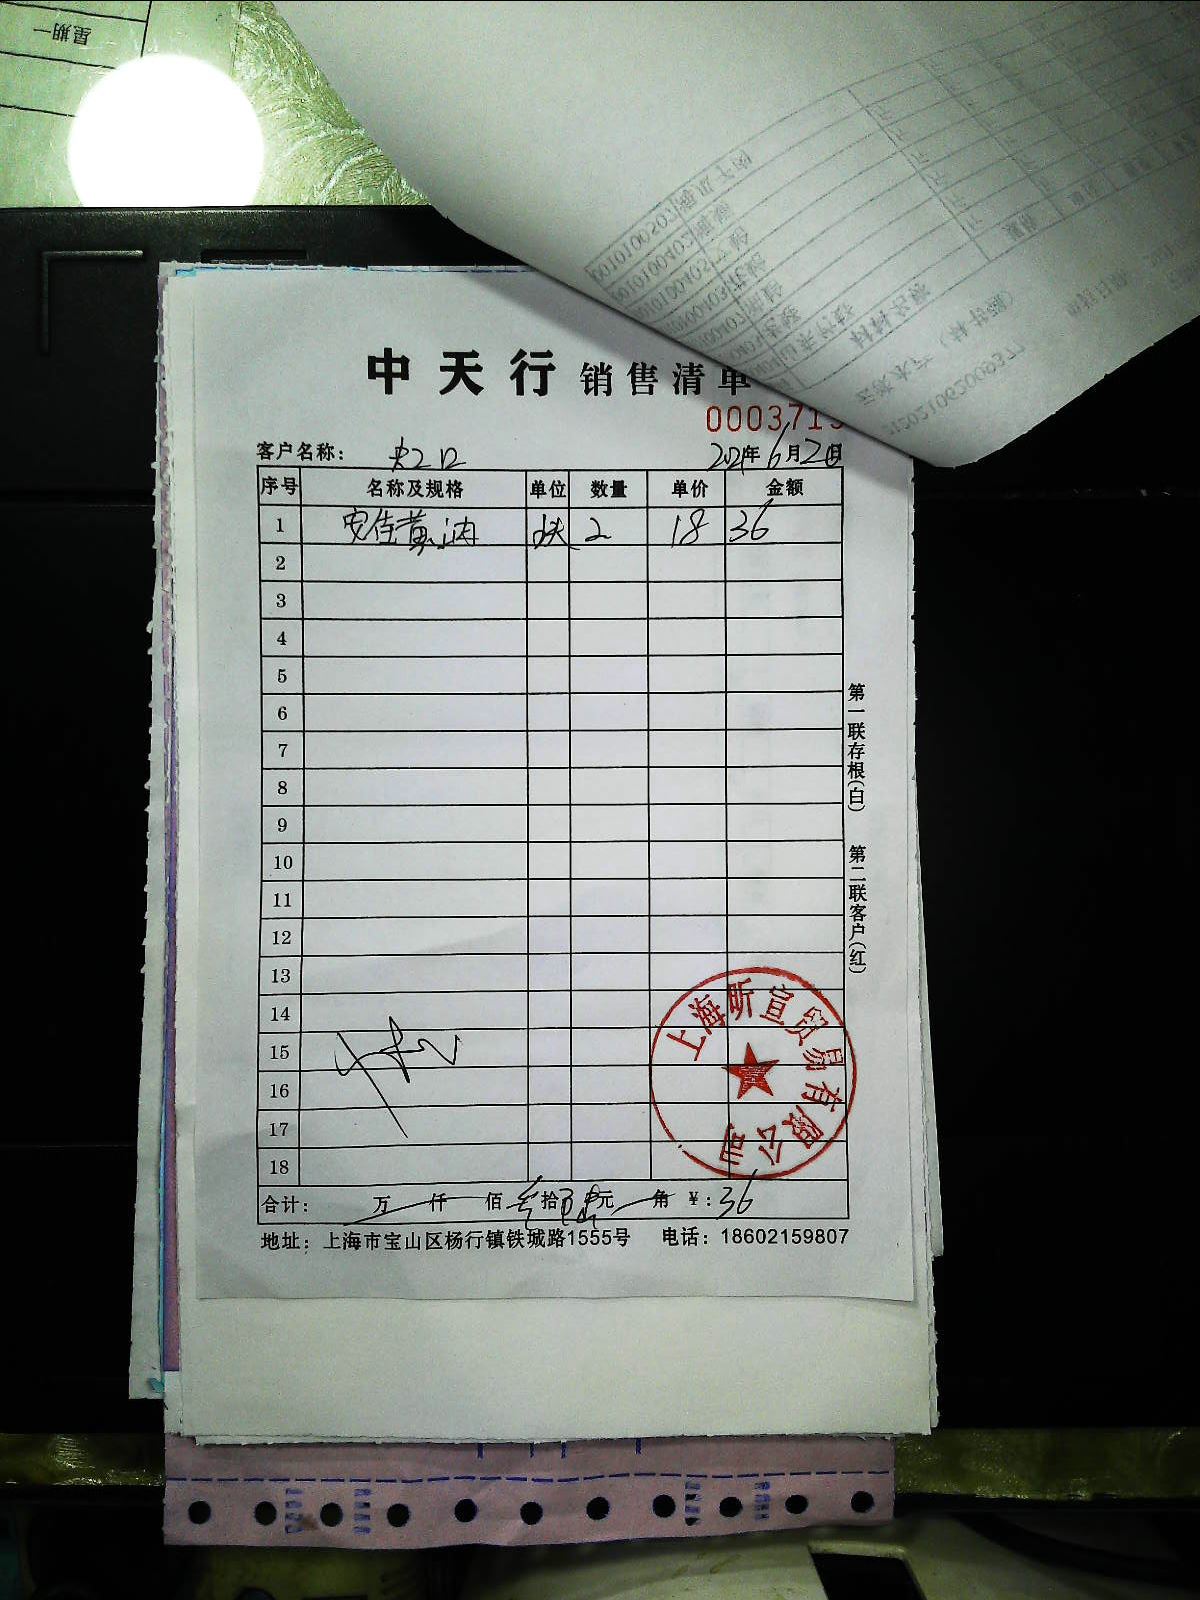 星期一
中天行 销售清单
000371
客户名称: 虹口 2021年6月2日
序号 名称及规格 单位 数量 单价 金额
1 安佳黄油 块 2 18 36
2
3
4
5
6
7
8
9
10
11
12
13
14
15
16
17
18
上海昕宣贸易有限公司
合计: 万 仟 佰 叁拾陆元 角 ¥:36
地址: 上海市宝山区杨行镇铁城路1555号 电话: 18602159807
第一联存根(白) 第二联客户(红)